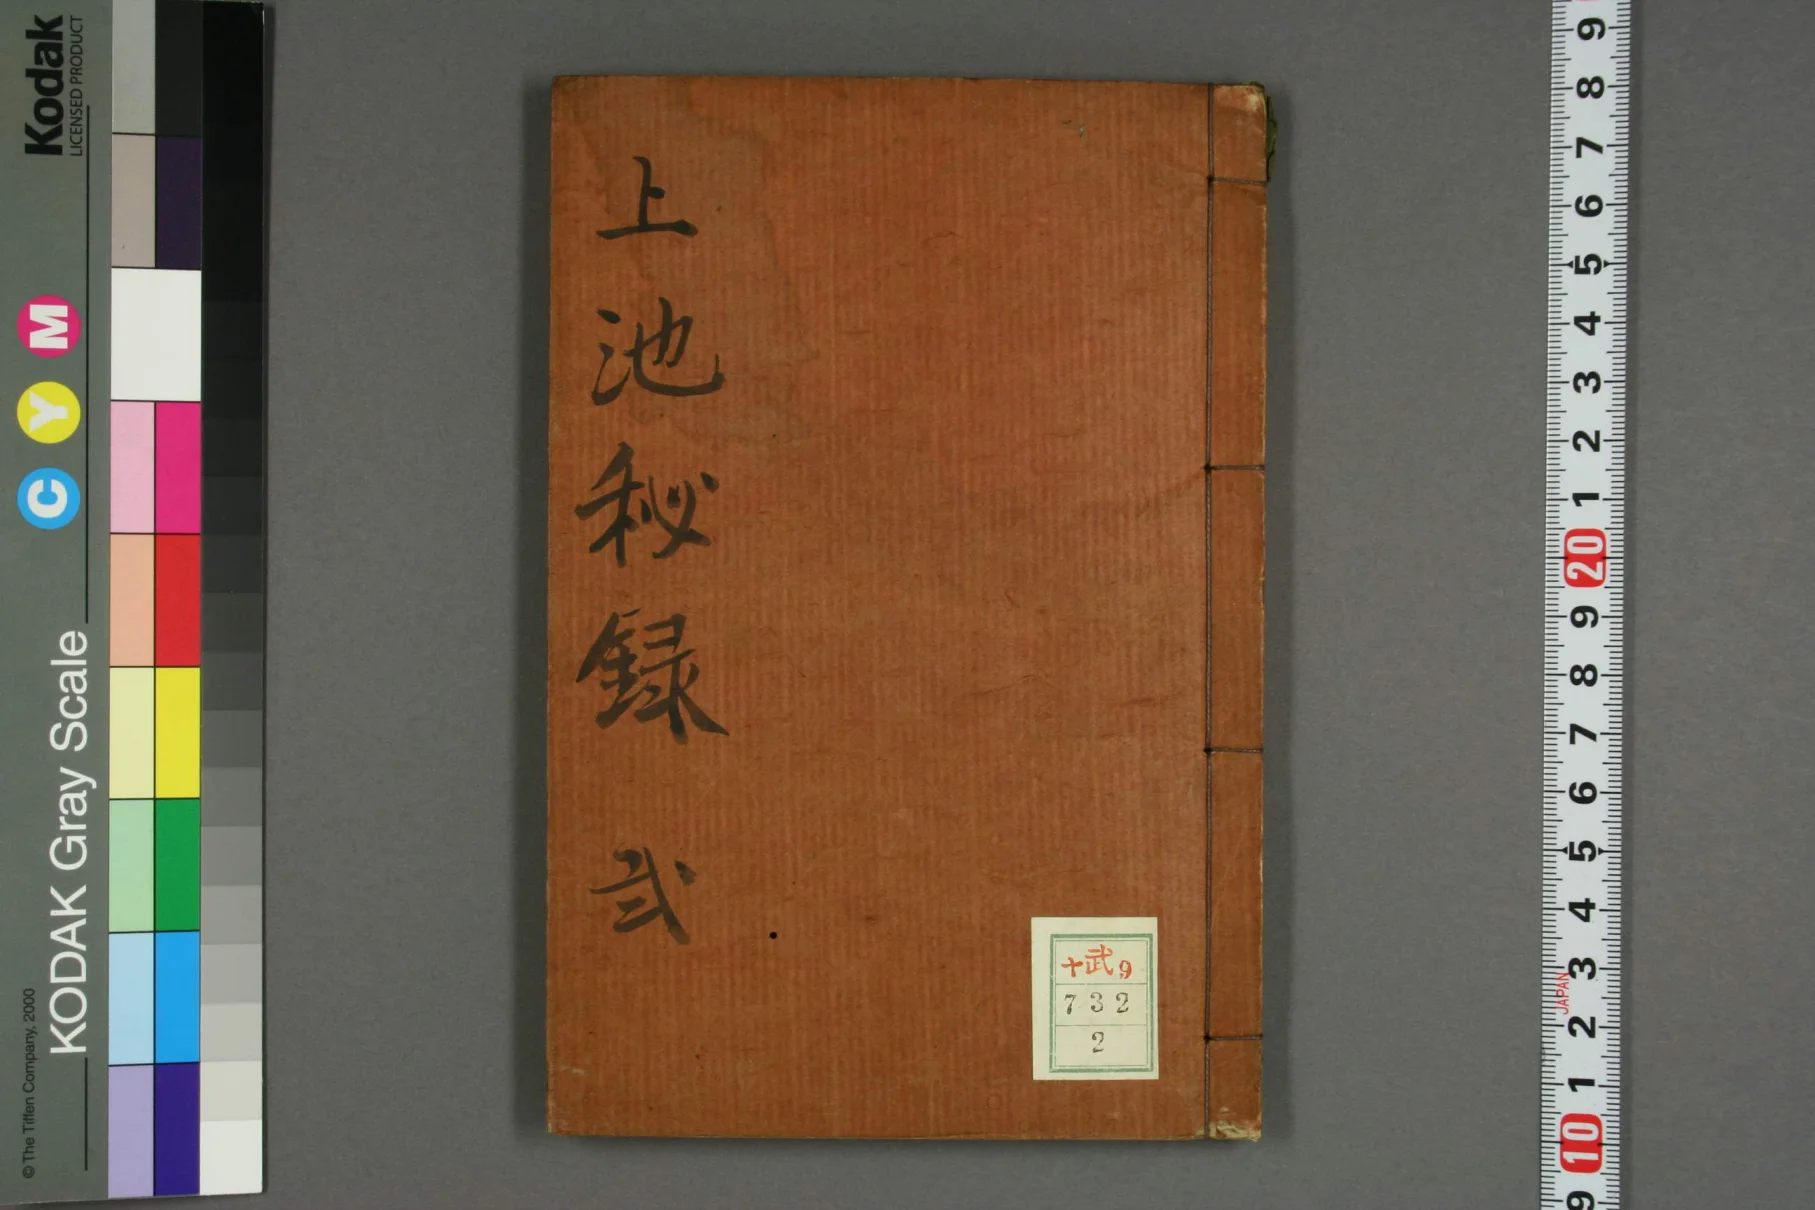 上池秘録 弐
十武9
732
2
Kodak
LICENSED PRODUCT
C Y M
KODAK Gray Scale
© The Tiffen Company, 2000
9
8
7
6
5
4
3
2
1
20
9
8
7
6
5
4
3
JAPAN
2
1
10
9